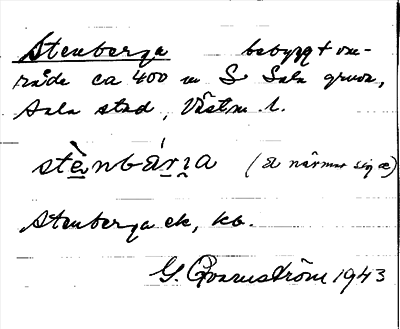 Stenberga bebyggt om-
råde ca 400 m S Sala gruva,
Sala stad, Västm. l.
stè̱nbárɪ̯a (a närmar sig æ)
Stenberga ek, kb.
G. Qvarnström 1943